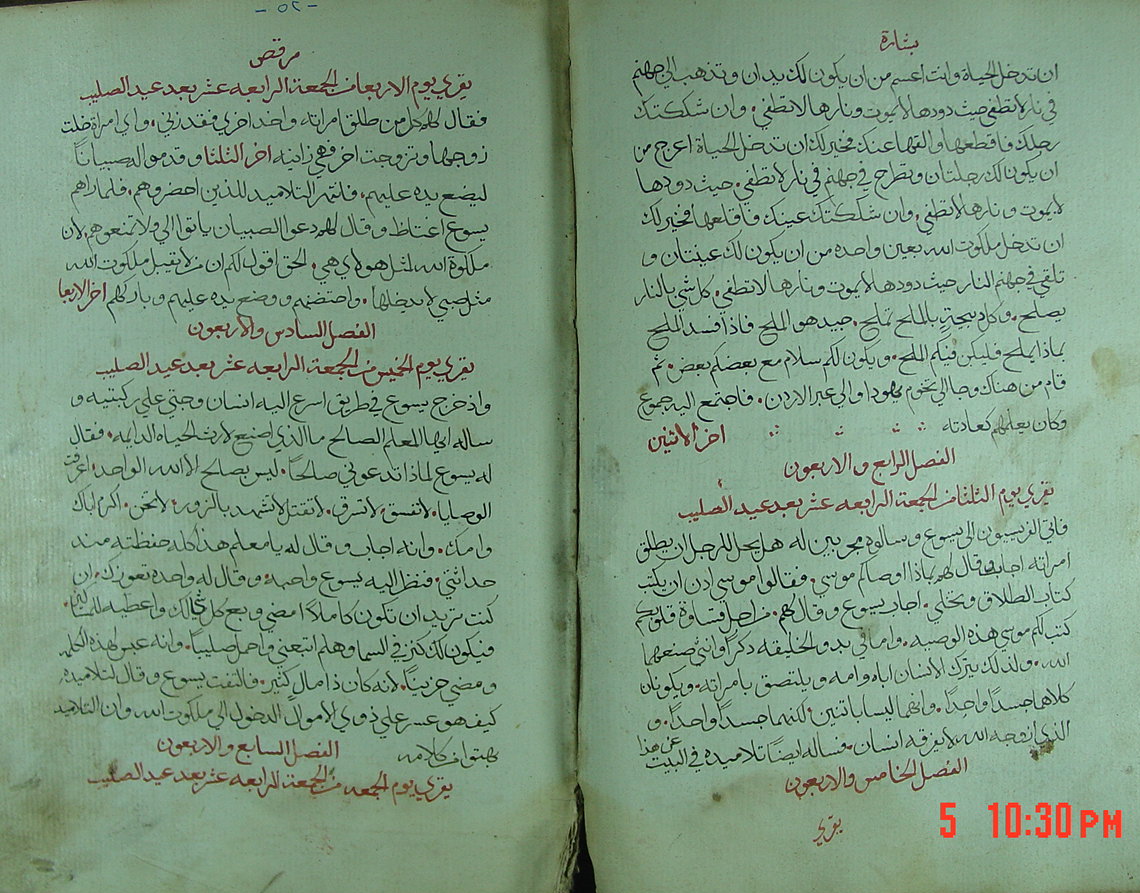 بشارة
ان تدخل الحياة وانت اعسم من ان يكون لك يدان وتذهب الى جهنم
في نار لا تطفي حيث دودها لا يموت ونارها لا تطفي. وان شككتك
رجلك فاقطعها والقها عنك فخير لك ان تدخل الحياة اعرج من
ان يكون لك رجلتان وتطرح في جهنم في نار لا تطفي. حيث دودها
لا يموت ونارها لا تطفي. وان شككتك عينك فاقلعها فخير لك
ان تدخل ملكوت الله بعين واحده من ان يكون لك عينتان و
تلقي في جهنم النار حيث دودها لا يموت ونارها لا تطفي. كل شي بالنار
يصلح. وكل دبيحة بالملح تملح. جيد هو الملح فاذا فسد الملح
بماذا يملح فليكن فيكم الملح. ويكون لكم سلام مع بعضكم بعض. ثم
قام من هناك وجا الى تخوم يهودا والى عبر الاردن. فاجتمع اليه جموع
وكان يعلمهم كعادته اخر الاثنين
الفصل الرابع والاربعون
يقري يوم الثلثا من الجمعة الرابعه عشر بعد عيد الصليب
فاتي الفريسيون الى يسوع وسالوه مجربين له هل يحل للرجل ان يطلق
امراته اجاب وقال لهم بماذا اوصاكم موسي. فقالوا موسي ادن ان يكتب
كتاب الطلاق وتخلي. اجاب يسوع وقال لهم. من اجل قساوة قلوبكم
كتب لكم موسي هذه الوصيه. واما في بدو الخليقه ذكراً وانثي صنعهما
الله. ولذلك يترك الانسان اباه وامه ويلتصق بامراته. ويكونان
كلاهما جسداً واحداً. وانهما ليسا باثنين لكنهما جسداً واحداً. و
الذي ازوجه الله لا يفرقه انسان. فساله ايضاً تلاميذه في البيت عن هذا
الفصل الخامس والاربعون
يقري
-٥٢-
مرقص
يقري يوم الاربعا من الجمعة الرابعه عشر بعد عيد الصليب
فقال لهم كل من طلق امراته واخد اخري فقد زني. واي امراة خلت
زوجها وتزوجت اخر فهي زانيه اخر الثلثا وقدموا له صبياناً
ليضع يده عليهم. فانتهر التلاميد للذين احضروهم. فلما راهم
يسوع اغتاظ وقال لهم دعوا الصبيان ياتوا الي ولا تمنعوهم. لان
ملكوة الله لمثل هولاي هي. الحق اقول لكم ان من لا يقبل ملكوت الله
مثل صبي لا يدخلها. واحتضنهم ووضع يده عليهم وباركهم اخر الاربعا
الفصل السادس والاربعون
يقري يوم الخميس من الجمعة الرابعه عشر بعد عيد الصليب
واذ خرج يسوع في طريق اسرع اليه انسان وجتي علي ركبتيه و
ساله ايها المعلم الصالح ما الذي اصنع لارث الحياه الدايمه. فقال
له يسوع لماذا تدعوني صالحاً. ليس يصلح الا الله الواحد. اعرفت
الوصايا. لا تفسق. لا تسرق. لا تقتل. لا تشهد بالزور. لا تخن. واكرم اباك
وامك. وانه اجاب وقال له يا معلم هذا كله حفظته مند
حداثتي. فنظر اليه يسوع واحبه. وقال له واحده تعوزك. ان
كنت تريد ان تكون كاملاً امضي وبع كل شي لك واعطيه للمساكين.
فيكون لك كنز في السما وهلم اتبعني واحمل صليباً. وانه عبس لهذه الكلمه
ومضي حزيناً. لانه كان ذا مال كثير. فالتفت يسوع وقال لتلاميذه.
كيف هو عسر علي ذوي الاموال الدخول الى ملكوت الله وان التلاميد
بهتوا من كلامه الفصل السابع والاربعون
يقري يوم الجمعه من الجمعة الرابعه عشر بعد عيد الصليب
5 10:30 PM